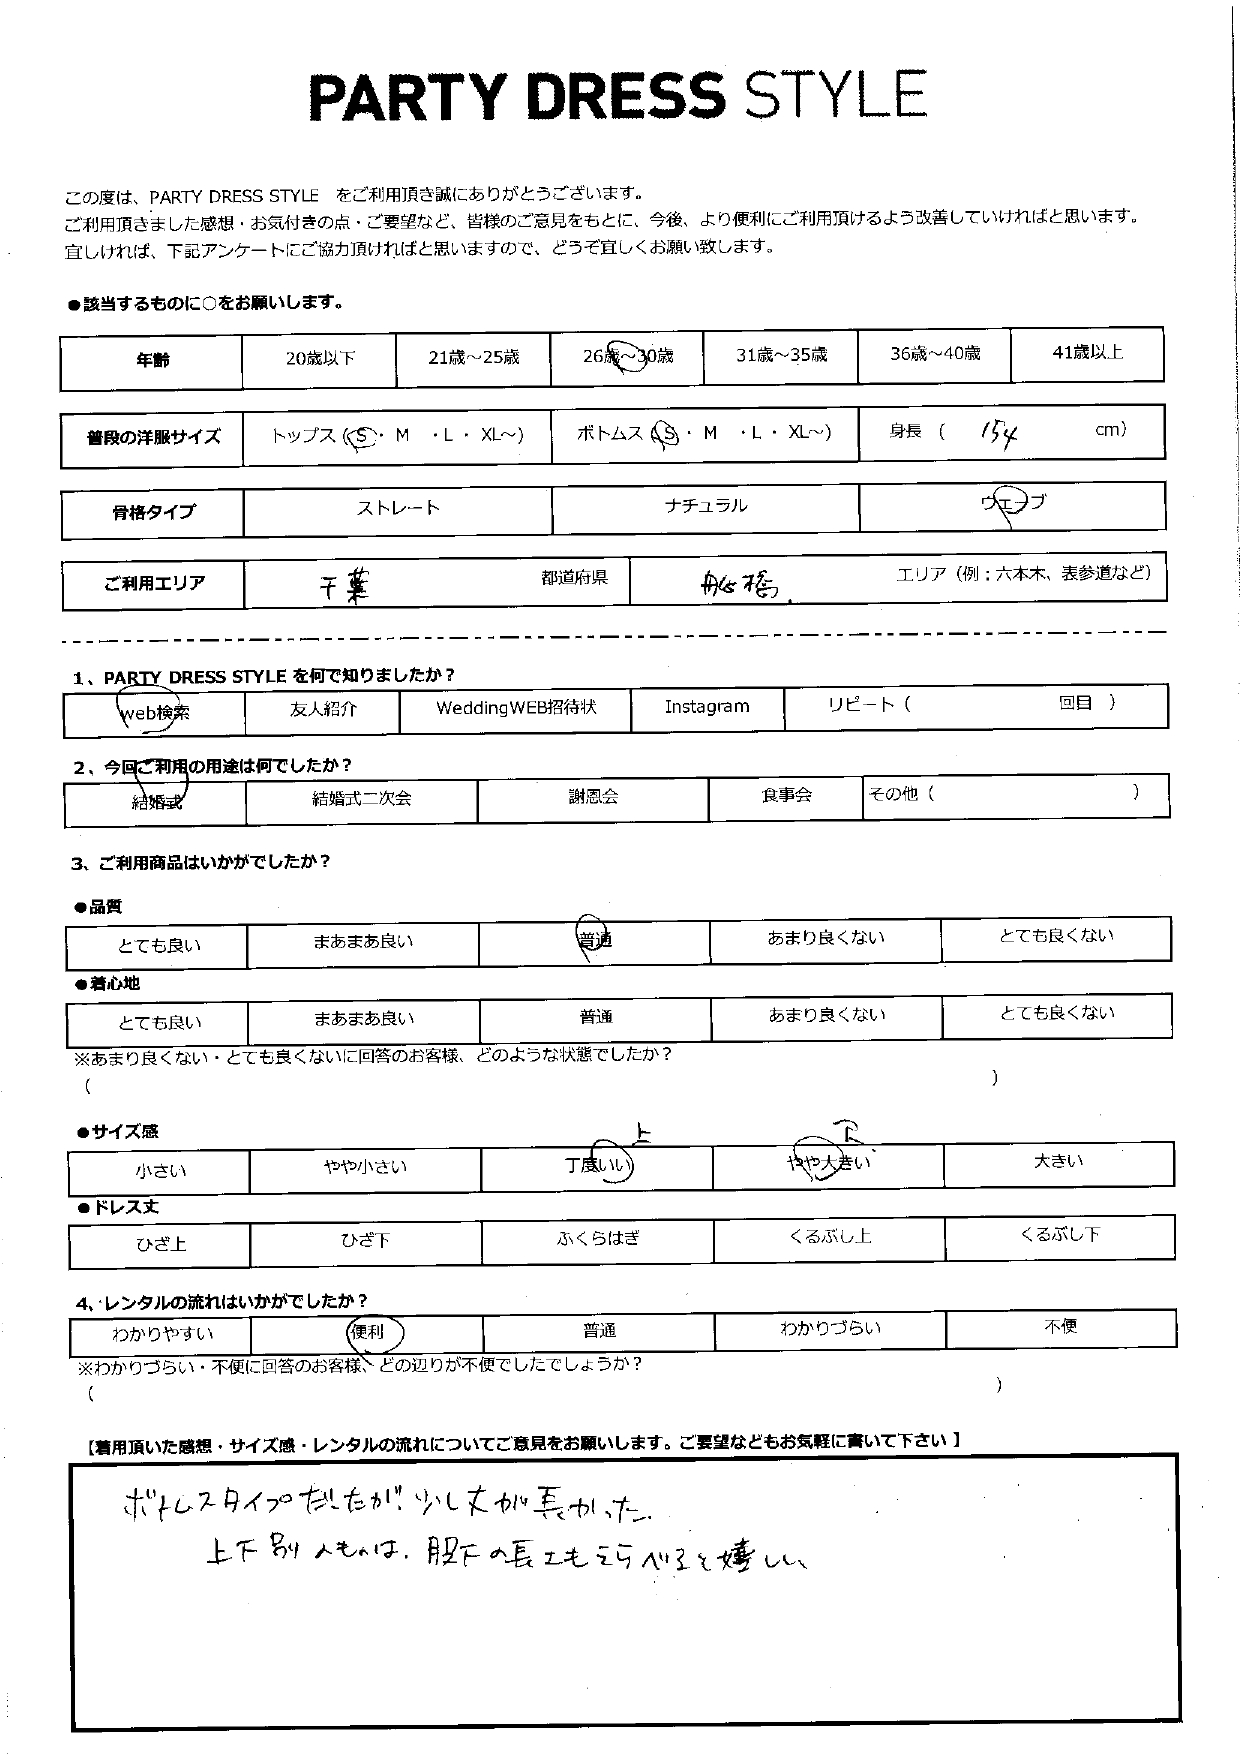 PARTY DRESS STYLE
この度は、PARTY DRESS STYLE をご利用頂き誠にありがとうございます。
ご利用頂きました感想・お気付きの点・ご要望など、皆様のご意見をもとに、今後、より便利にご利用頂けるよう改善していければと思います。
宜しければ、下記アンケートにご協力頂ければと思いますので、どうぞ宜しくお願い致します。
●該当するものに○をお願いします。
年齢 20歳以下 21歳～25歳 26歳～30歳 31歳～35歳 36歳～40歳 41歳以上
普段の洋服サイズ トップス (S・ M ・L ・ XL～) ボトムス (S・ M ・L ・ XL～) 身長 ( 154 cm)
骨格タイプ ストレート ナチュラル ウェーブ
ご利用エリア 千葉 都道府県 船橋 エリア（例：六本木、表参道など）
1、PARTY DRESS STYLE を何で知りましたか？
web検索 友人紹介 WeddingWEB招待状 Instagram リピート（ 回目 ）
2、今回ご利用の用途は何でしたか？
結婚式 結婚式二次会 謝恩会 食事会 その他（ ）
3、ご利用商品はいかがでしたか？
●品質
とても良い まあまあ良い 普通 あまり良くない とても良くない
●着心地
とても良い まあまあ良い 普通 あまり良くない とても良くない
※あまり良くない・とても良くないに回答のお客様、どのような状態でしたか？
（ ）
●サイズ感 上 下
小さい やや小さい 丁度いい やや大きい 大きい
●ドレス丈
ひざ上 ひざ下 ふくらはぎ くるぶし上 くるぶし下
4、レンタルの流れはいかがでしたか？
わかりやすい 便利 普通 わかりづらい 不便
※わかりづらい・不便に回答のお客様、どの辺りが不便でしたでしょうか？
（ ）
【着用頂いた感想・サイズ感・レンタルの流れについてご意見をお願いします。ご要望などもお気軽に書いて下さい】
ボトムスタイプだったが、少し丈が長かった.
上下別のものは、股下の長さもえらべると嬉しい、